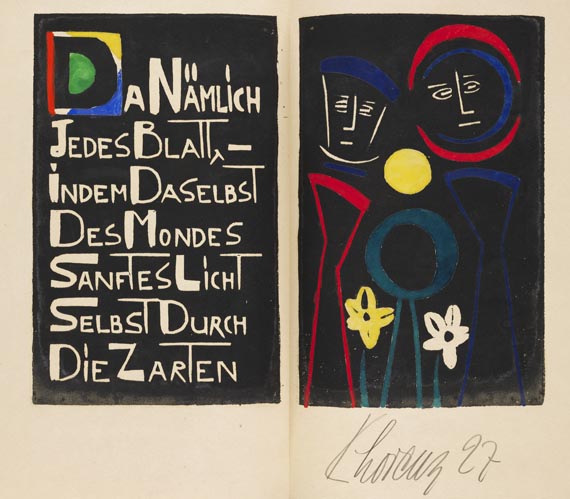 Da Nämlich
Jedes Blatt, –
indem Daselbst
Des Mondes
Sanftes Licht
Selbst Durch
Die Zarten
K Lorenz 27